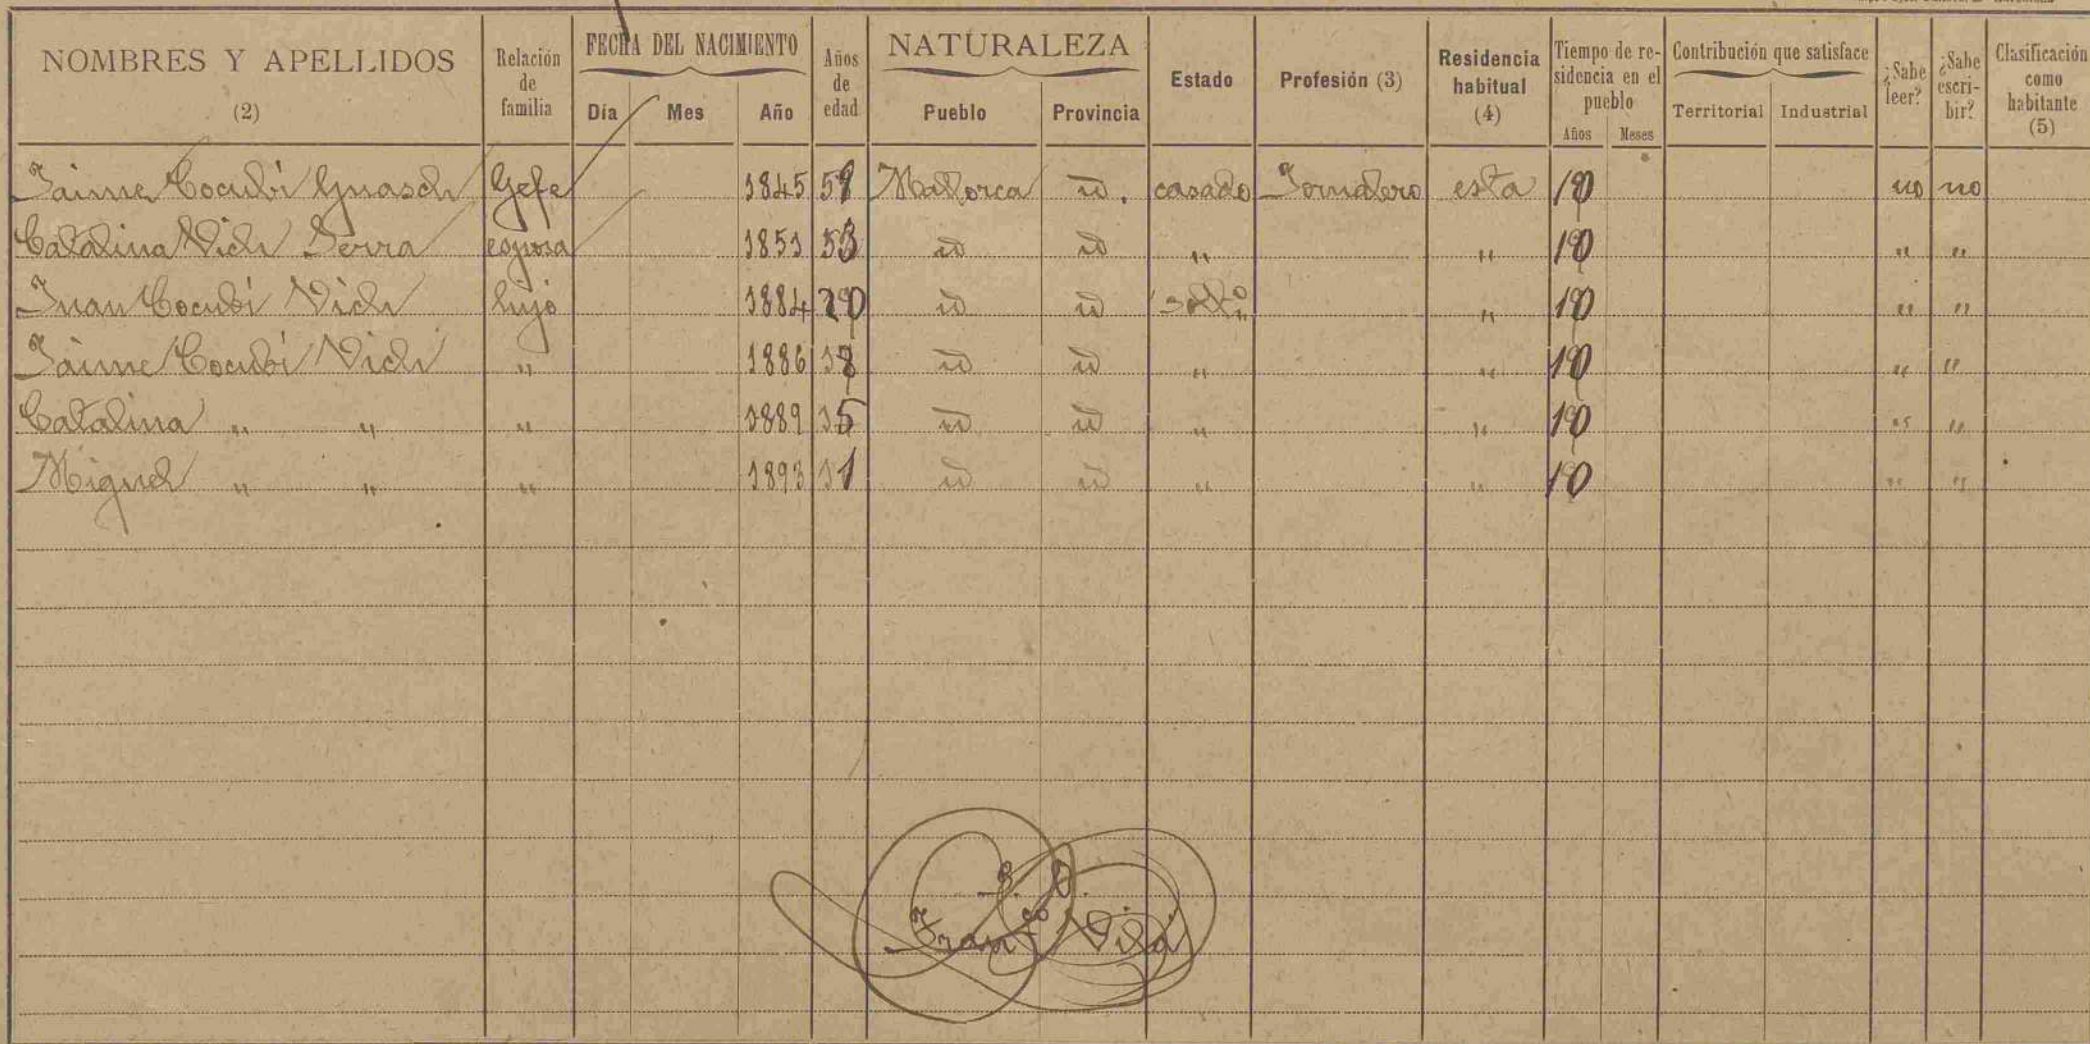 NOMBRES Y APELLIDOS (2) Relación de familia FECHA DEL NACIMIENTO Día Mes Año Años de edad NATURALEZA Pueblo Provincia Estado Profesión (3) Residencia habitual (4) Tiempo de residencia en el pueblo Años Meses Contribución que satisface Territorial Industrial ¿Sabe leer? ¿Sabe escribir? Clasificación como habitante (5)
Jaime Cocubí Guasch Gefe 1845 59 Mallorca id. casado Jornalero esta 10 no no
Catalina Vich Serra esposa 1851 53 id id " " 10 " "
Juan Cocubí Vich hijo 1884 20 id id solto " 10 " "
Jaime Cocubí Vich " 1886 18 id id " " 10 " "
Catalina " " " 1889 15 id id " " 10 " "
Miguel " " " 1893 11 id id " " 10 " "
Franco Vilá